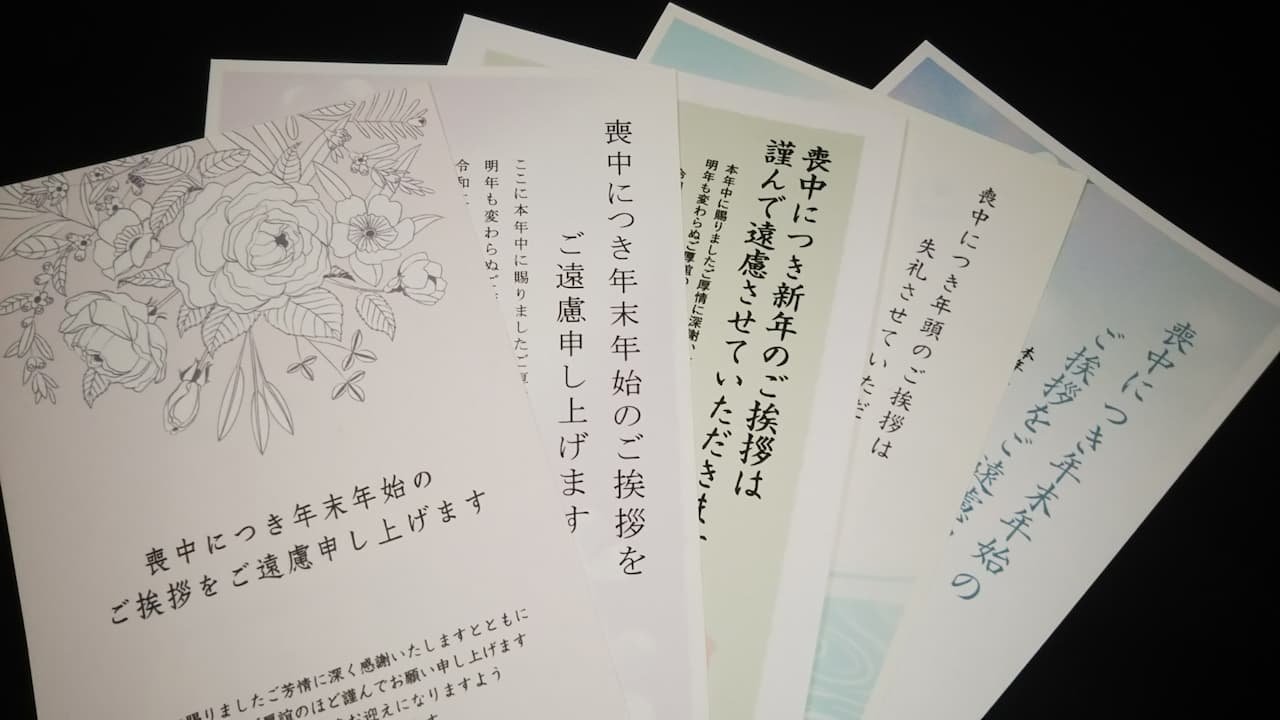 喪中につき年末年始の
ご挨拶をご遠慮申し上げます
賜りましたご芳情に深く感謝いたしますとともに
厚誼のほど謹んでお願い申し上げます
お迎えになりますよう
喪中につき年末年始のご挨拶を
ご遠慮申し上げます
ここに本年中に賜りましたご
明年も変わらぬご
令和
喪中につき新年のご挨拶は
謹んで遠慮させていただきま
本年中に賜りましたご厚情に深謝
明年も変わらぬご厚誼
喪中につき年頭のご挨拶は
失礼させていただ
喪中につき年末年始の
ご挨拶をご遠慮
本年